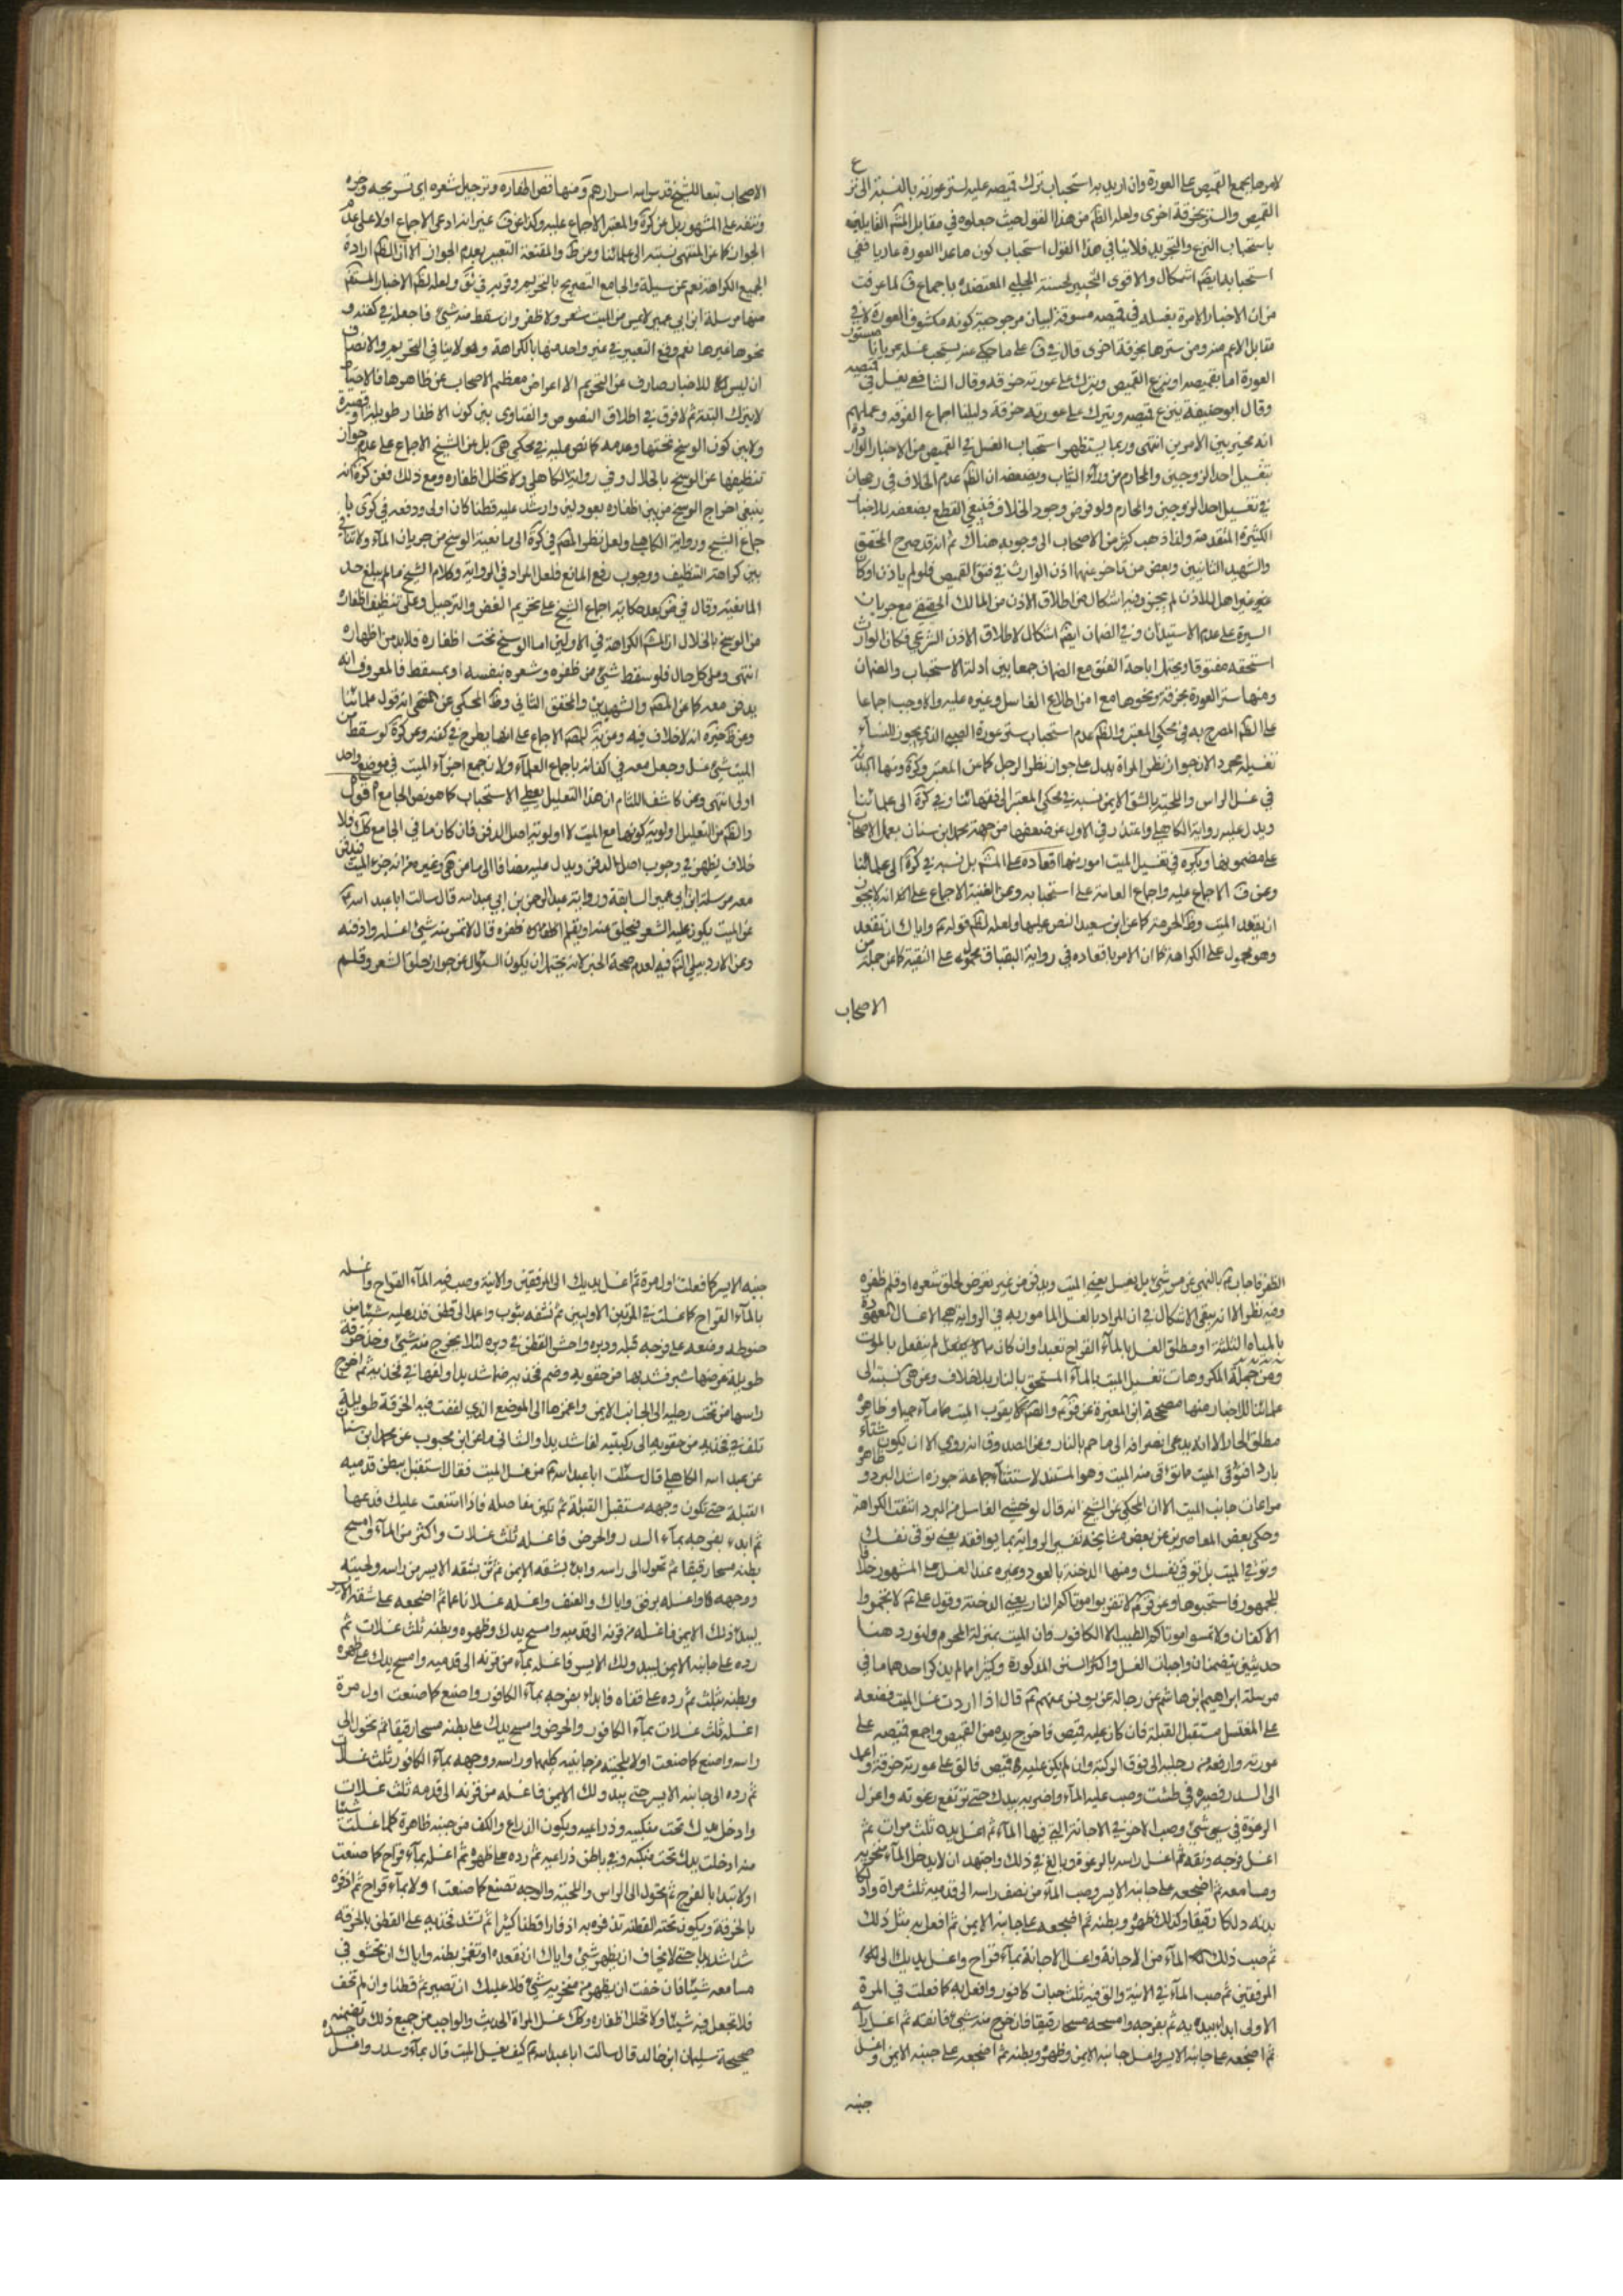 لامر ما يجمع القميص على العورة وان اريد به استحباب ترك قميصه عليه لستر عورته بالنسبة الى نزع
القميص والستر بخرقة اخرى ولعله الظم من هذا القول حيث جعلوه في مقابل
باستحباب النزع والتجريد فلا ينافي هذا القول استحباب كون ما عدا العورة عاريا ففي
استحبابه ايضا اشكال والاقوى
من ان الاخبار الامرة بغسله في قميصه مسوقة لبيان مرجوحية كونه مكشوف العورة لا في
مقابل الاعم منه ومن سترها بخرقة اخرى قال في ف على ما حكي عنه يستحب غسله عريانا مستور
العورة اما بقميصه او ينزع القميص ويترك على عورته خرقة وقال الشافعي يغسل في قميصه
وقال ابو حنيفة ينزع قميصه ويترك على عورته خرقة دليلنا اجماع الفرقة وعملهم
انه مخير بين الامرين انتهى وربما يستظهر استحباب الغسل في القميص من الاخبار الواردة
بتغسيل احد الزوجين والمحارم من وراء الثياب ويضعفه ان الظم عدم الخلاف في رجحان
في تغسيل احد الزوجين والمحارم ولو فرض وجود الخلاف
الكثيرة المتقدمة ولذا ذهب كثير من الاصحاب الى وجوبه هناك ثم انه قد صرح المحقق
والشهيد الثانيين وبعض من تاخر عنهما اذن الوارث في فتق القميص فلو لم ياذن او كان
غير اهل للاذن لم يجز وفيه اشكال من اطلاق الاذن من المالك الحقيقي مع جريان
السيرة على عدم الاستيذان وفي الضمان ايضا اشكال لاطلاق الاذن الشرعي فكان الوارث
استحقه مفتوقا ويحتمل اباحة الفتق مع الضمان جمعا بين ادلة الاستحباب والضمان
ومنها ستر العورة بخرقة ونحوها مع امن اطلاع الغاسل وغيره عليه والا وجب اجماعا
على الظم المصرح به في محكي المعتبر والظم عدم استحباب ستر عورة الصبي الذي يجوز للنساء
تغسيله مجردا لان جواز نظر المراة يدل على جواز نظر الرجل كما عن المعتبر وكرة ومنها البدئة
في غسل الراس واللحية بالشق الايمن نسبه في محكي المعتبر الى فقهائنا وفي كرة الى علمائنا
ويدل عليه رواية الكاهلي واعتذر في الاول عن ضعفها من جهة محمد ابن سنان بعمل الاصحاب
على مضمونها ويكره في تغسيل الميت امور منها اقعاده على المشهور بل نسبه في كرة الى علمائنا
وعن ف الاجماع عليه واجماع العامة على استحبابه وعن الغنية الاجماع على انه لا يجوز
ان يقعد الميت وظ الحرمة كما عن ابن سعيد النص عليها ولعله لظم قوله ع واياك ان تقعد
وهو محمول على الكراهة كما ان الامر باقعاده في رواية البقباق محمول على التقية كما عن جملة من
الاصحاب
الاصحاب تبعا للشيخ قدس الله اسرارهم ومنها قص اظفاره وترجيل شعره اي تسريحه وجزه
ونتفه على المشهور بل عن كرة والمعتبر الاجماع عليه وكذا عن ف غير انه ادعى الاجماع اولا على عدم
الجواز كما عن المنتهى نسبته الى علمائنا وعن ط والمقنعة التعبير بعدم الجواز الا ان الظم ارادة
الجميع الكراهة نعم عن سيلة والجامع التصريح بالتحريم
منها مرسلة ابن ابي عمير لا يمس من الميت شعر ولا ظفر وان سقط منه شيئ فاجعله في كفنه و
نحوها غيرها نعم وقع التعبير في غير واحد منها بالكراهة وهو لا ينافي التحريم والانصاف
ان ليس للاخبار صارف عن التحريم الا اعراض معظم الاصحاب عن ظاهرها فالاحتياط
لا يترك البتة ثم لا فرق في اطلاق النصوص والفتاوى بين كون الاظفار طويلة او قصيرة
ولا بين كون الوسخ تحتها وعدمه كما نص عليه في محكي هى بل عن الشيخ الاجماع على عدم جواز
تنظيفها عن الوسخ بالخلال وفي رواية الكاهلي ولا تخلل اظفاره ومع ذلك فعن كرة انه
ينبغي اخراج الوسخ من بين اظفاره بعود لين وان شد عليه قطنا كان اولى ودفعه في كرى با
جماع الشيخ ورواية الكاهلي ولعل نظر المصم في كرة الى مانعية الوسخ من جريان الماء ولا تنافي
بين كراهة التنظيف ووجوب رفع المانع فلعل المراد في الرواية وكلام الشيخ ما لم يبلغ حد
المانعية وقال في ض بعد حكاية اجماع الشيخ على تحريم القص والترجيل وعلى تنظيف اظفاره
من الوسخ بالخلال ان الكراهة في الاولين اما الوسخ تحت اظفاره فلا بد من اظهاره
انتهى وعلى كل حال فلو سقط شيئ من ظفره وشعره بنفسه او بمسقط فالمعروف انه
يدفن معه كما عن المصم والشهيدين والمحقق الثاني وظ المحكي عن المنتهى انه قول علمائنا
وعن ظ غيره انه لا خلاف فيه وعن ية المصم الاجماع على انها يطرح في كفنه وعن كرة لو سقط من
الميت شيئ غسل وجعل معه في اكفانه باجماع العلماء ولان جمع اجزاء الميت في موضع واحد
اولى انتهى وعن كاشف اللثام ان هذا التعليل يعطي الاستحباب كما هو نص الجامع اقول
والظم من التعليل اولوية كونها مع الميت لا اولوية اصل الدفن فان كان ما في الجامع كك فلا
خلاف يظهر في وجوب اصل الدفن ويدل عليه مضافا الى ما عن هى وغيره من انه جزء الميت فيدفن
معه مرسلة ابن ابي عمير السابقة ورواية عبد الرحمن بن ابي عبد الله قال سالت ابا عبد الله ع
عن الميت يكون عليه الشعر فيحلق عنه او يقلم ظفره قال لا تمس منه شيئ اغسله وادفنه
وعن الاردبيلي التم فيه لعدم صحة الخبر لانه يحتمل ان يكون السؤال عن جواز حلق الشعر وقلم
الظفر فاجاب ع بالنهي عن مس شيئ بل يغسل يعني الميت ويدفن من غير تعرض لحلق شعره او قلم ظفره
وفيه نظر الا انه يبقى الاشكال في ان المراد بالغسل المامور به في الرواية هي الاغسال المعهودة
بالمياه الثلثة او مطلق الغسل بالماء القراح تعبدا وان كان مما لا ينفعل لم ينفعل بالموت
ومن جملة المكروهات تغسيل الميت بالماء المسخن بالنار بلا خلاف وعن هى نسبته الى
علمائنا للاخبار منها صحيحة ابن المغيرة عن لا يقرب الميت ماء حميما وظاهره
مطلق الحار الا انه يدعى انصرافه الى ما حم بالنار وعن الصدوق انه روي الا ان يكون شتاء
باردا فتوقى الميت ما توقى منه الميت وهو المستند لاستثناء جماعة صورة اشتداد البرد و ظاهره
مراعات جانب الميت الا ان المحكي عن الشيخ انه قال لو خشي الغاسل من البرد انتفت الكراهة
وحكى بعض المعاصرين عن بعض مشايخه تفسير الرواية بما يوافقه يعني توقى نفسك
وتوقي الميت بل توقي نفسك ومنها الدخنة بالعود وغيره عند الغسل على المشهور خلافا
للجمهور فاستحبوها وعن قوله ع لا تقربوا موتاكم النار يعني الدخنة وقول علي ع لا تجمروا
الاكفان ولا تمسوا موتاكم الطيب الا الكافور فان الميت بمنزلة المحرم ولنورد هنا
حديثين يتضمنان واجبات الغسل واكثر السنن المذكورة وكثيرا مما لم يذكر احدهما ما في
مرسلة ابراهيم ابن هاشم عن رجاله عن يونس عنهم ع قال اذا اردت غسل الميت فضعه
على المغتسل مستقبل القبلة فان كان عليه قميص فاخرج يده من القميص واجمع قميصه على
عورته وارفعه من رجليه الى فوق الركبة وان لم يكن عليه قميص فالق على عورته خرقة واعمد
الى السدر فصيره في طشت وصب عليه الماء واضربه بيدك حتى ترتفع رغوته واعزل
الرغوة في شيئ وصب الاخر في الاجانة التي فيها الماء ثم اغسل يديه ثلث مرات ثم
اغسل فرجه ونقه ثم اغسل راسه بالرغوة وبالغ في ذلك واجتهد ان لا يدخل الماء منخريه
ومسامعه ثم اضجعه على جانبه الايسر وصب الماء من نصف راسه الى قدميه ثلث مرات وادلك
بدنه دلكا رقيقا وكذلك ظهره وبطنه ثم اضجعه على جانبه الايمن ثم افعل به مثل ذلك
ثم صب ذلك الماء من الاجانة واغسل الاجانة بماء قراح واغسل يديك الى
المرفقين ثم صب الماء في الانية والق فيه ثلث حبات كافور وافعل به كما فعلت في المرة
الاولى ابدا بيديه ثم بفرجه وامسحه مسحا رقيقا فان خرج منه شيئ فانقه ثم اغسل راسه
ثم اضجعه على جانبه الايسر واغسل جانبه الايمن وظهره وبطنه ثم اضجعه على جنبه الايمن واغسل
جنبه
جنبه الايسر كما فعلت اول مرة ثم اغسل يديك الى المرفقين والانية وصب فيه الماء القراح واغسله
بالماء القراح كما غسلت في المرتين الاوليين ثم نشفه بثوب واعمد الى قطن فذر عليه شيئا من
حنوطه وضعه على فرجه قبله ودبره واحش القطن في دبره لئلا يخرج منه شيئ وخذ خرقة
طويلة عرضها شبر فشدها من حقويه وضم فخذيه ضما شديدا ولفها في فخذيه ثم اخرج
راسها من تحت رجليه الى الجانب الايمن واغمزها الى الموضع الذي لففت فيه الخرقة طويلة
تلف فخذيه من حقويه الى ركبتيه لفا شديدا والثاني ما عن ابن محبوب عن محمد ابن سنان
عن عبد الله الكاهلي قال سئلت ابا عبد الله ع عن غسل الميت فقال استقبل ببطن قدميه
القبلة حتى يكون وجهه مستقبل القبلة ثم تلين مفاصله فاذا امتنعت عليك فدعها
ثم ابدء بفرجه بماء السدر والحرض فاغسله ثلث غسلات واكثر من الماء وامسح
بطنه مسحا رقيقا ثم تحول الى راسه وابدء بشقه الايمن ثم ثن بشقه الايسر من راسه ولحيته
ووجهه فاغسله برفق واياك والعنف واغسله غسلا ناعما ثم اضجعه على شقه الايسر
ليبدء لك الايمن فاغسله من قرنه الى قدميه وامسح يدك وظهره وبطنه ثلث غسلات ثم
رده على جانبه الايمن ليبدو لك الايسر فاغسله بماء من قرنه الى قدميه وامسح يدك على ظهره
وبطنه بثلث ثم رده على قفاه فابداء بفرجه بماء الكافور واصنع كما صنعت اول مرة
اغسله ثلث غسلات بماء الكافور والحرض وامسح يدك على بطنه مسحا رقيقا ثم تحول الى
راسه واصنع كما صنعت اولا بلحيته من جانبيه كليهما وراسه ووجهه بماء الكافور ثلث غسلات
ثم رده الى جانبه الايسر حتى يبدو لك الايمن فاغسله من قرنه الى قدمه ثلث غسلات
وادخل يدك تحت منكبيه وذراعيه ويكون الذراع والكف من جنبه ظاهرة كلما غسلت شيئا
منه ادخلت يدك تحت منكبيه وفي باطن ذراعيه ثم رده على ظهره ثم اغسله بماء قراح كما صنعت
اولا تبدا بالفرج ثم تحول الى الراس واللحية والوجه تصنع كما صنعت اولا بماء قراح ثم اذفره
بالخرقة ويكون تحته القطن تذفره به اذفارا قطنا كثيرا ثم تشد فخذيه على القطن بالخرقة
شدا شديدا حتى لا يخاف ان يظهر شيئ واياك ان تقعده او تغمز بطنه واياك ان تحشو في
مسامعه شيئا فان خفت ان يظهر من منخريه شيئ فلا عليك ان تصير ثم قطنا وان لم تخف
فلا تجعل فيه شيئا ولا تخلل اظفاره وكك غسل المراة الحديث والواجب من جميع ذلك ما تضمنه
صحيحة سليمان ابن خالد قال سالت ابا عبد الله ع كيف يغسل الميت قال بماء وسدر واغسل جسده